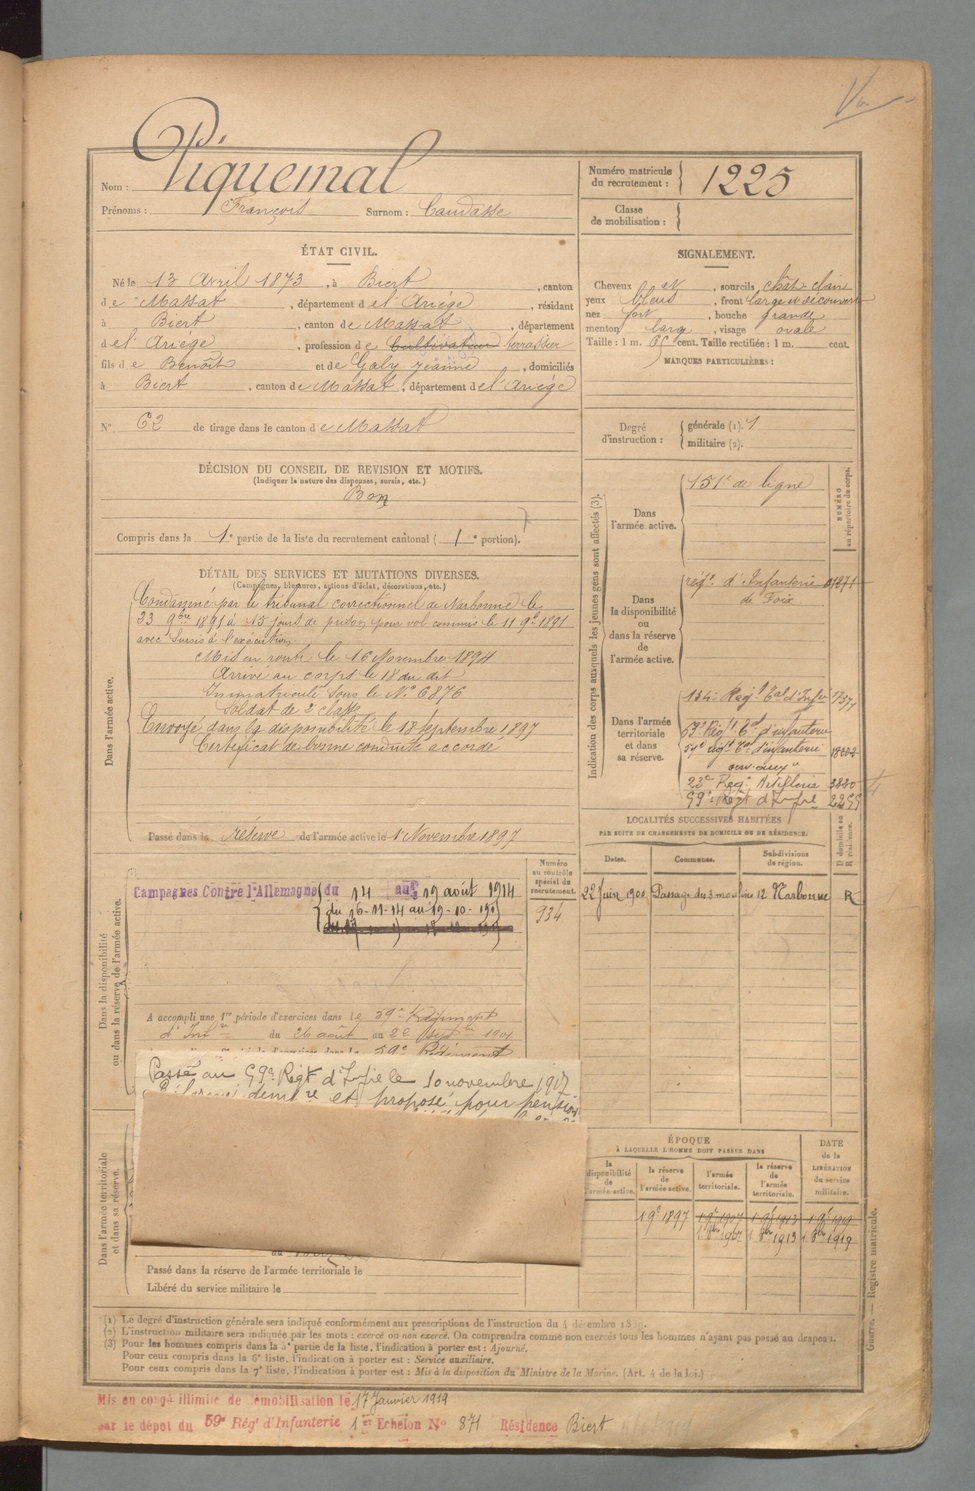 Nom : Piquemal
Prénoms : François Surnom : Caudasse
Numéro matricule du recrutement : 1225
Classe de mobilisation :
ÉTAT CIVIL.
Né le 13 Avril 1873, à Biert, canton
de Massat, département de l'Ariège, résidant
à Biert, canton de Massat, département
de l'Ariège, profession de Cultivateur terrassier
fils de Benoît et de Galy Jeanne, domiciliés
à Biert, canton de Massat, département de l'Ariège
N° 62 de tirage dans le canton de Massat
SIGNALEMENT.
Cheveux et, sourcils chât. clair
yeux bleus, front large et découvert
nez fort, bouche grande
menton large, visage ovale
Taille : 1 m. cent. Taille rectifiée : 1 m. cent.
MARQUES PARTICULIÈRES :
Degré d'instruction : générale (1). 1
militaire (2).
DÉCISION DU CONSEIL DE REVISION ET MOTIFS.
(Indiquer la nature des dispenses, sursis, etc.)
Bon
Compris dans la 1e partie de la liste du recrutement cantonal (1e portion).
DÉTAIL DES SERVICES ET MUTATIONS DIVERSES.
(Campagnes, blessures, actions d'éclat, décorations, etc.)
Dans l'armée active.
Condamné par le tribunal correctionnel de Narbonne le
9bre 1891 à 15 jours de prison pour vol commis le 11 9bre 1891
avec sursis à l'exécution
Mis en route le 16 Novembre 1894
Arrivé au corps le 18 du dit
Immatriculé sous le N° 6876
Soldat de 2e classe
Envoyé dans la disponibilité le 18 septembre 1897
Certificat de bonne conduite accordé
Passé dans la réserve de l'armée active le 1 Novembre 1897
Indication des corps auxquels les jeunes gens sont affectés (3).
NUMÉRO au répertoire du corps.
Dans l'armée active.
151e de ligne
Dans la disponibilité ou dans la réserve de l'armée active.
régt. d'Infanterie
de Foix.
Dans l'armée territoriale et dans sa réserve.
134e Regt Eal d'Infrie
59e Régt. Eal d'infanterie
Régt Eal d'infanterie
23e Regt Artillerie
59e Régt d'Infie
LOCALITÉS SUCCESSIVES HABITÉES
PAR SUITE DE CHANGEMENTS DE DOMICILE OU DE RÉSIDENCE.
Dates. Communes. Subdivisions de région. D domicile ou R résidence.
22 Juin 1900 Passage des 3 moulins 12 Narbonne R
Dans la disponibilité ou dans la réserve de l'armée active.
Numéro au contrôle spécial du recrutement.
934
Campagnes Contre l'Allemagne du 14 au 19 août 1914
du 16-11-14 au 19-10-
A accompli une 1re période d'exercices dans le 59e Régiment
d'Infie du 26 août au 22 Septbre 1901
59e Régiment
Passé au 59e Régt d'Infie le 10 novembre 1917
et proposé pour pension
Dans l'armée territoriale et dans sa réserve.
Passé dans la réserve de l'armée territoriale le
Libéré du service militaire le
ÉPOQUE
À LAQUELLE L'HOMME DOIT PASSER DANS
la disponibilité de l'armée active. la réserve de l'armée active. l'armée territoriale. la réserve de l'armée territoriale.
DATE de la LIBÉRATION du service militaire.
1 9bre 1897 1 9bre 1907 1 9bre 1913 1 9bre 1919
1. 8bre 1907 1. 8bre 1913 1. 8bre 1919
Guerre. — Registre matricule.
(1) Le degré d'instruction générale sera indiqué conformément aux prescriptions de l'instruction du 4 décembre
(2) L'instruction militaire sera indiquée par les mots : exercé ou non exercé. On comprendra comme non exercés tous les hommes n'ayant pas passé au drapeau.
(3) Pour les hommes compris dans la 5e partie de la liste, l'indication à porter est : Ajourné.
Pour ceux compris dans la 6e liste, l'indication à porter est : Service auxiliaire.
Pour ceux compris dans la 7e liste, l'indication à porter est : Mis à la disposition du Ministre de la Marine. (Art. 4 de la loi.)
Mis en congé illimité de démobilisation le 17 Janvier 1919
par le dépôt du 59e Régt d'Infanterie 1er Echelon N° 871 Résidence Biert